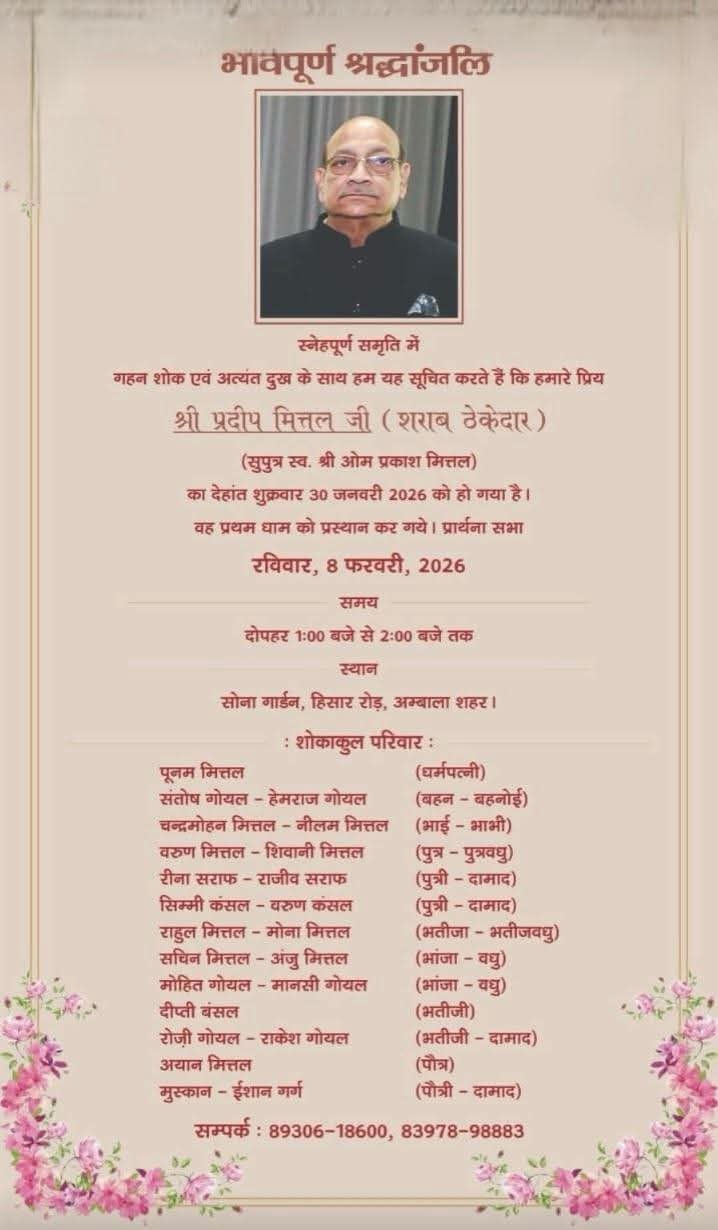 भावपूर्ण श्रद्धांजलि
स्नेहपूर्ण समृति में
गहन शोक एवं अत्यंत दुख के साथ हम यह सूचित करते हैं कि हमारे प्रिय
श्री प्रदीप मित्तल जी (शराब ठेकेदार)
(सुपुत्र स्व. श्री ओम प्रकाश मित्तल)
का देहांत शुक्रवार 30 जनवरी 2026 को हो गया है।
वह प्रथम धाम को प्रस्थान कर गये। प्रार्थना सभा
रविवार, 8 फरवरी, 2026
समय
दोपहर 1:00 बजे से 2:00 बजे तक
स्थान
सोना गार्डन, हिसार रोड़, अम्बाला शहर।
: शोकाकुल परिवार :
पूनम मित्तल (धर्मपत्नी)
संतोष गोयल – हेमराज गोयल (बहन – बहनोई)
चन्द्रमोहन मित्तल – नीलम मित्तल (भाई – भाभी)
वरुण मित्तल – शिवानी मित्तल (पुत्र – पुत्रवधु)
रीना सराफ – राजीव सराफ (पुत्री – दामाद)
सिम्मी कंसल – वरुण कंसल (पुत्री – दामाद)
राहुल मित्तल – मोना मित्तल (भतीजा – भतीजवधु)
सचिन मित्तल – अंजु मित्तल (भांजा – वधु)
मोहित गोयल – मानसी गोयल (भांजा – वधु)
दीप्ती बंसल (भतीजी)
रोज़ी गोयल – राकेश गोयल (भतीजी – दामाद)
अयान मित्तल (पौत्र)
मुस्कान – ईशान गर्ग (पौत्री – दामाद)
सम्पर्क : 89306-18600, 83978-98883